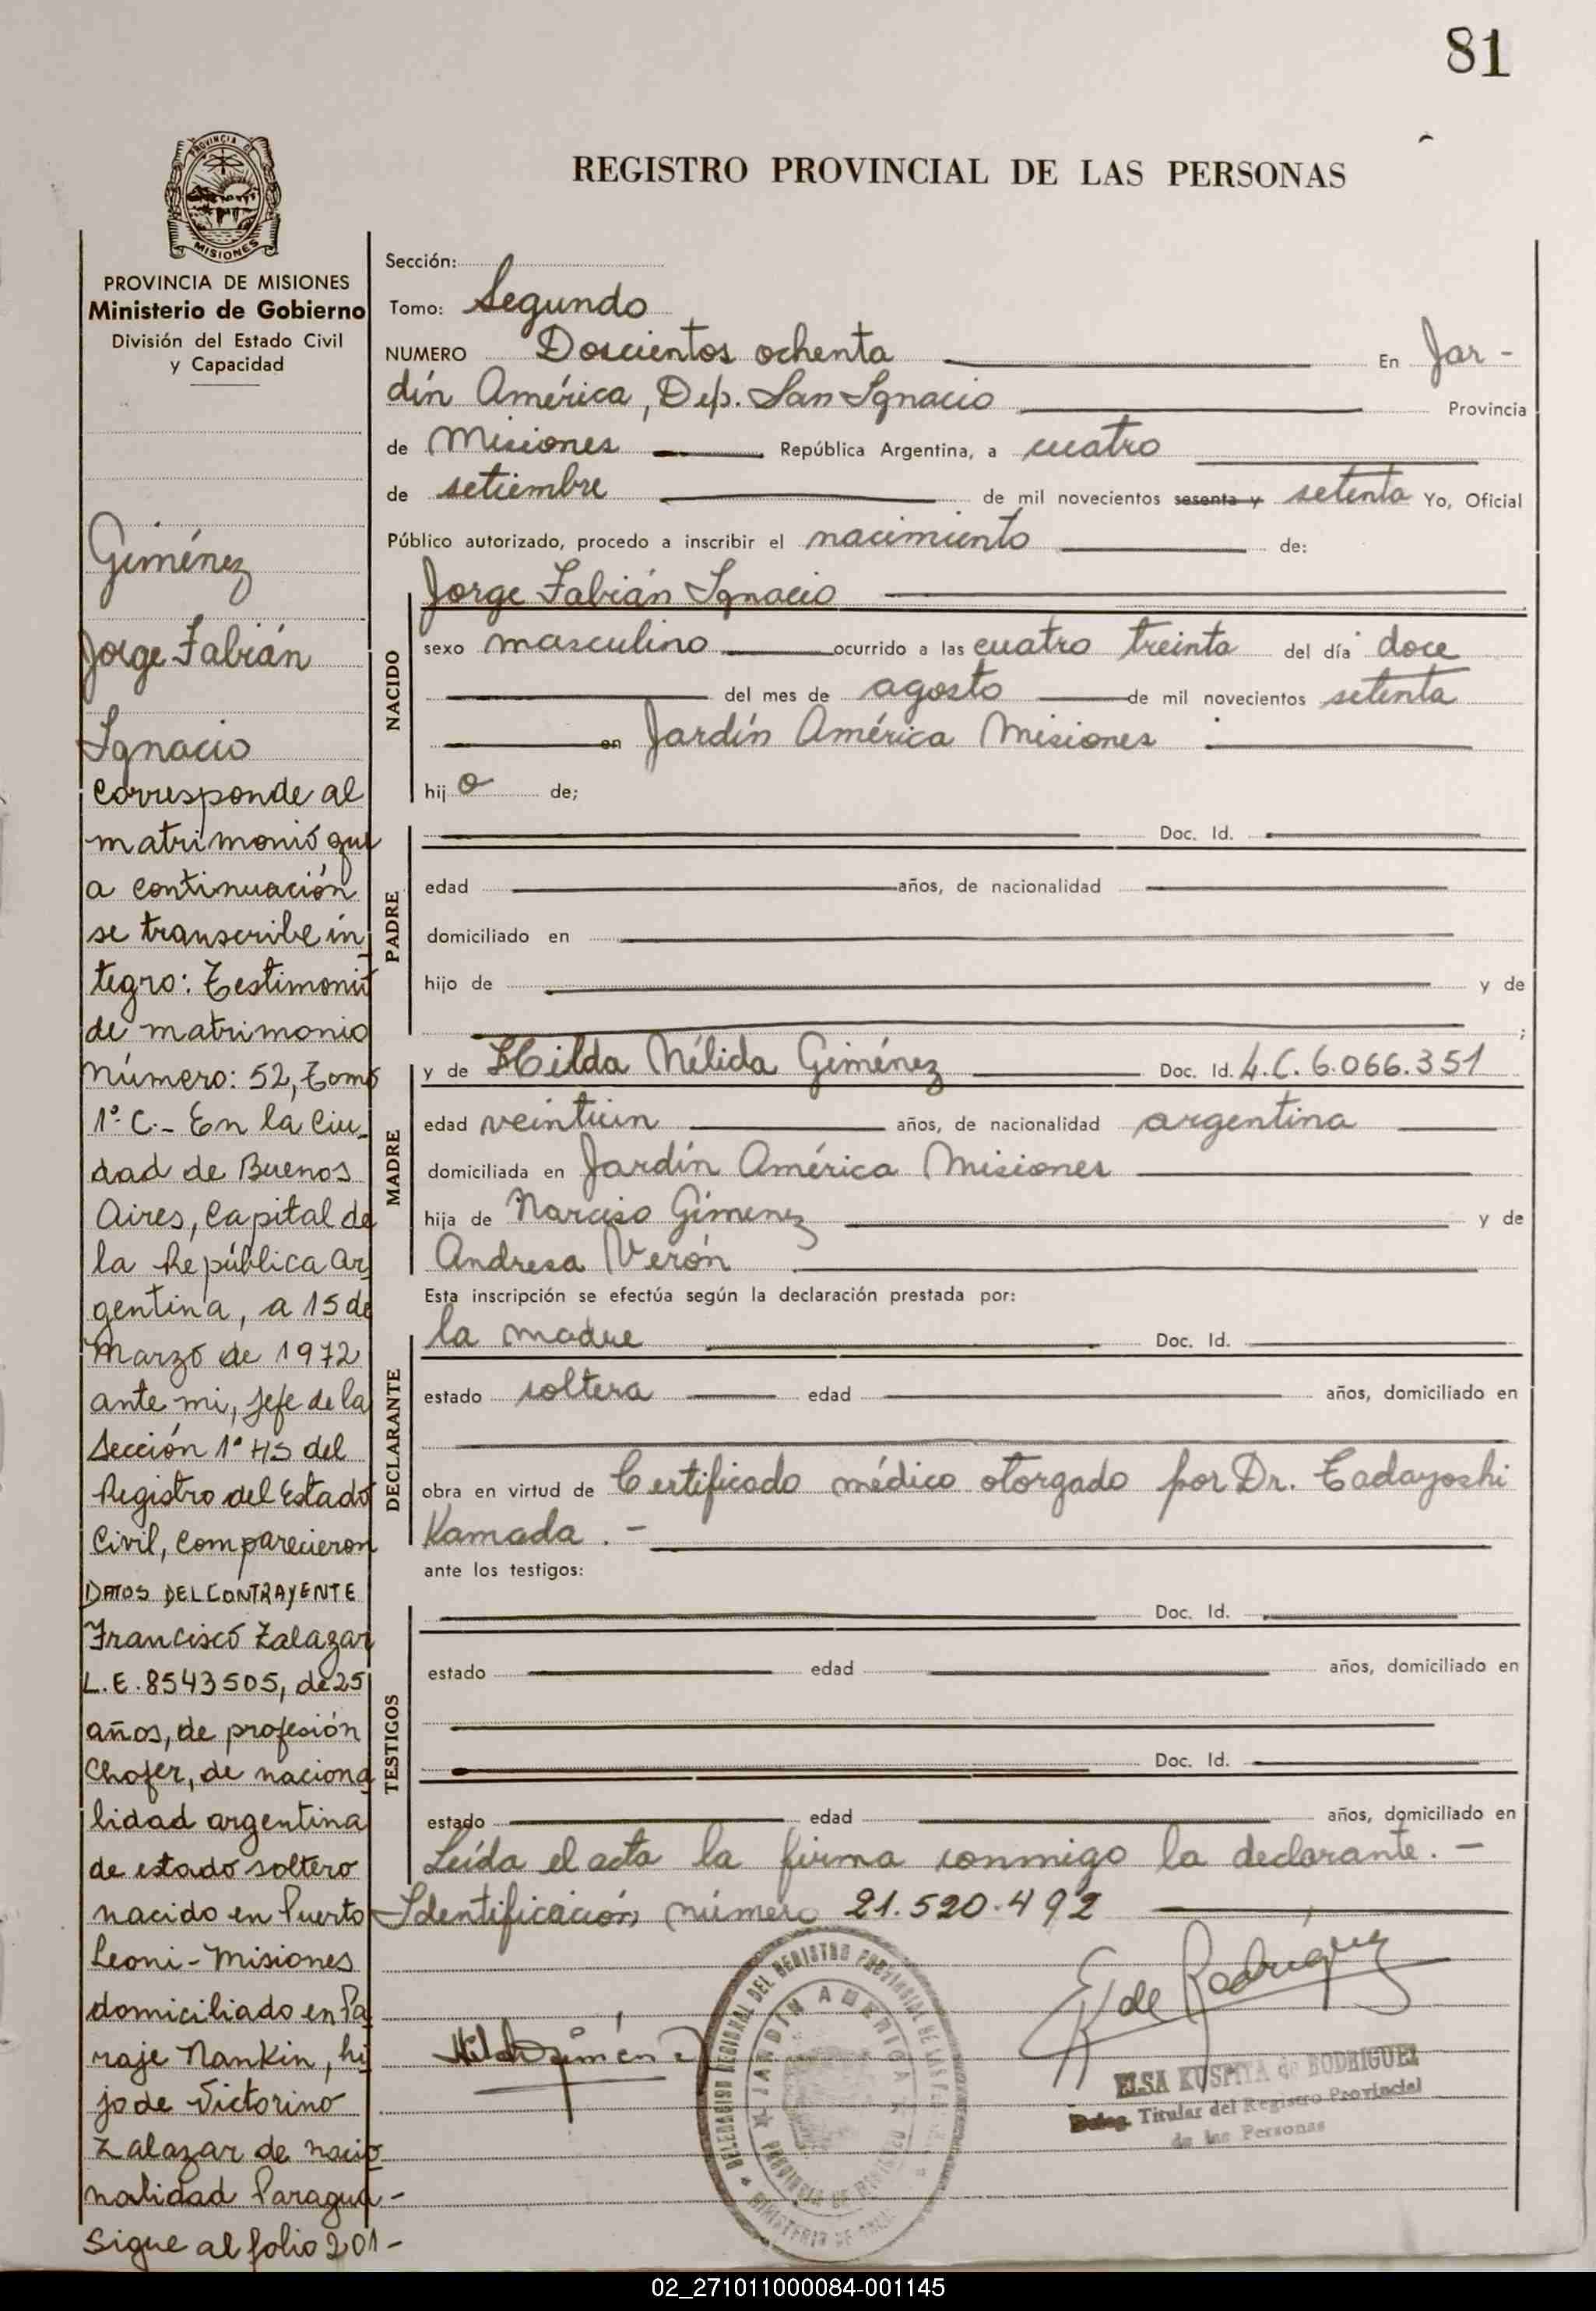 81
REGISTRO PROVINCIAL DE LAS PERSONAS
PROVINCIA DE MISIONES
Ministerio de Gobierno
División del Estado Civil
y Capacidad
Giménez
Jorge Fabián
Ignacio
Corresponde al
matrimonio que
a continuación
se transcribe ín
tegro: Testimonio
de matrimonio
Número: 52, Tomo
1º C.- En la Ciu_
dad de Buenos
Aires, Capital de
la República Ar_
gentina, a 15 de
Marzo de 1972
ante mi, Jefe de la
Sección 1ª HS del
Registro del Estado
Civil, Comparecieron
DATOS DEL CONTRAYENTE
Francisco Zalazar
L.E. 8543505, de 25
años, de profesión
Chofer, de naciona
lidad argentina
de estado soltero
nacido en Puerto
Leoni - Misiones
domiciliado en Pa
raje Nankin, hi
jo de Victorino
Zalazar de nacio
nalidad Paragua-
Sigue al folio 201-
Sección:
Tomo: Segundo
NUMERO Doscientos ochenta En Jar-
dín América, Dep. San Ignacio Provincia
de Misiones República Argentina, a cuatro
de setiembre de mil novecientos sesenta y setenta Yo, Oficial
Público autorizado, procedo a inscribir el nacimiento de:
NACIDO
Jorge Fabián Ignacio
sexo masculino ocurrido a las cuatro treinta del día doce
del mes de agosto de mil novecientos setenta
en Jardín América Misiones
hij o de;
PADRE
Doc. Id.
edad años, de nacionalidad
domiciliado en
hijo de y de
;
MADRE
y de Hilda Nélida Giménez Doc. Id. L.C. 6.066.351
edad veintiún años, de nacionalidad argentina
domiciliada en Jardín América Misiones
hija de Narciso Gímenez y de
Andresa Verón
Esta inscripción se efectúa según la declaración prestada por:
DECLARANTE
la madre Doc. Id.
estado soltera edad años, domiciliado en
obra en virtud de Certificado médico otorgado por Dr. Tadayoshi
Kamada .-
ante los testigos:
TESTIGOS
Doc. Id.
estado edad años, domiciliado en
Doc. Id.
estado edad años, domiciliado en
Leída el acta la firma conmigo la declarante.-
Identificación número 21.520.492
E K de Rodríguez
Hilda Giménez
ELSA KUSPITA de RODRIGUEZ
Deleg. Titular del Registro Provincial
de las Personas
DELEGACION REGIONAL DEL REGISTRO PROVINCIAL DE LAS PERSONAS
JARDIN AMERICA
PROVINCIA DE MISIONES
MINISTERIO DE GOB.
PROVINCIA DE
MISIONES
02_271011000084-001145